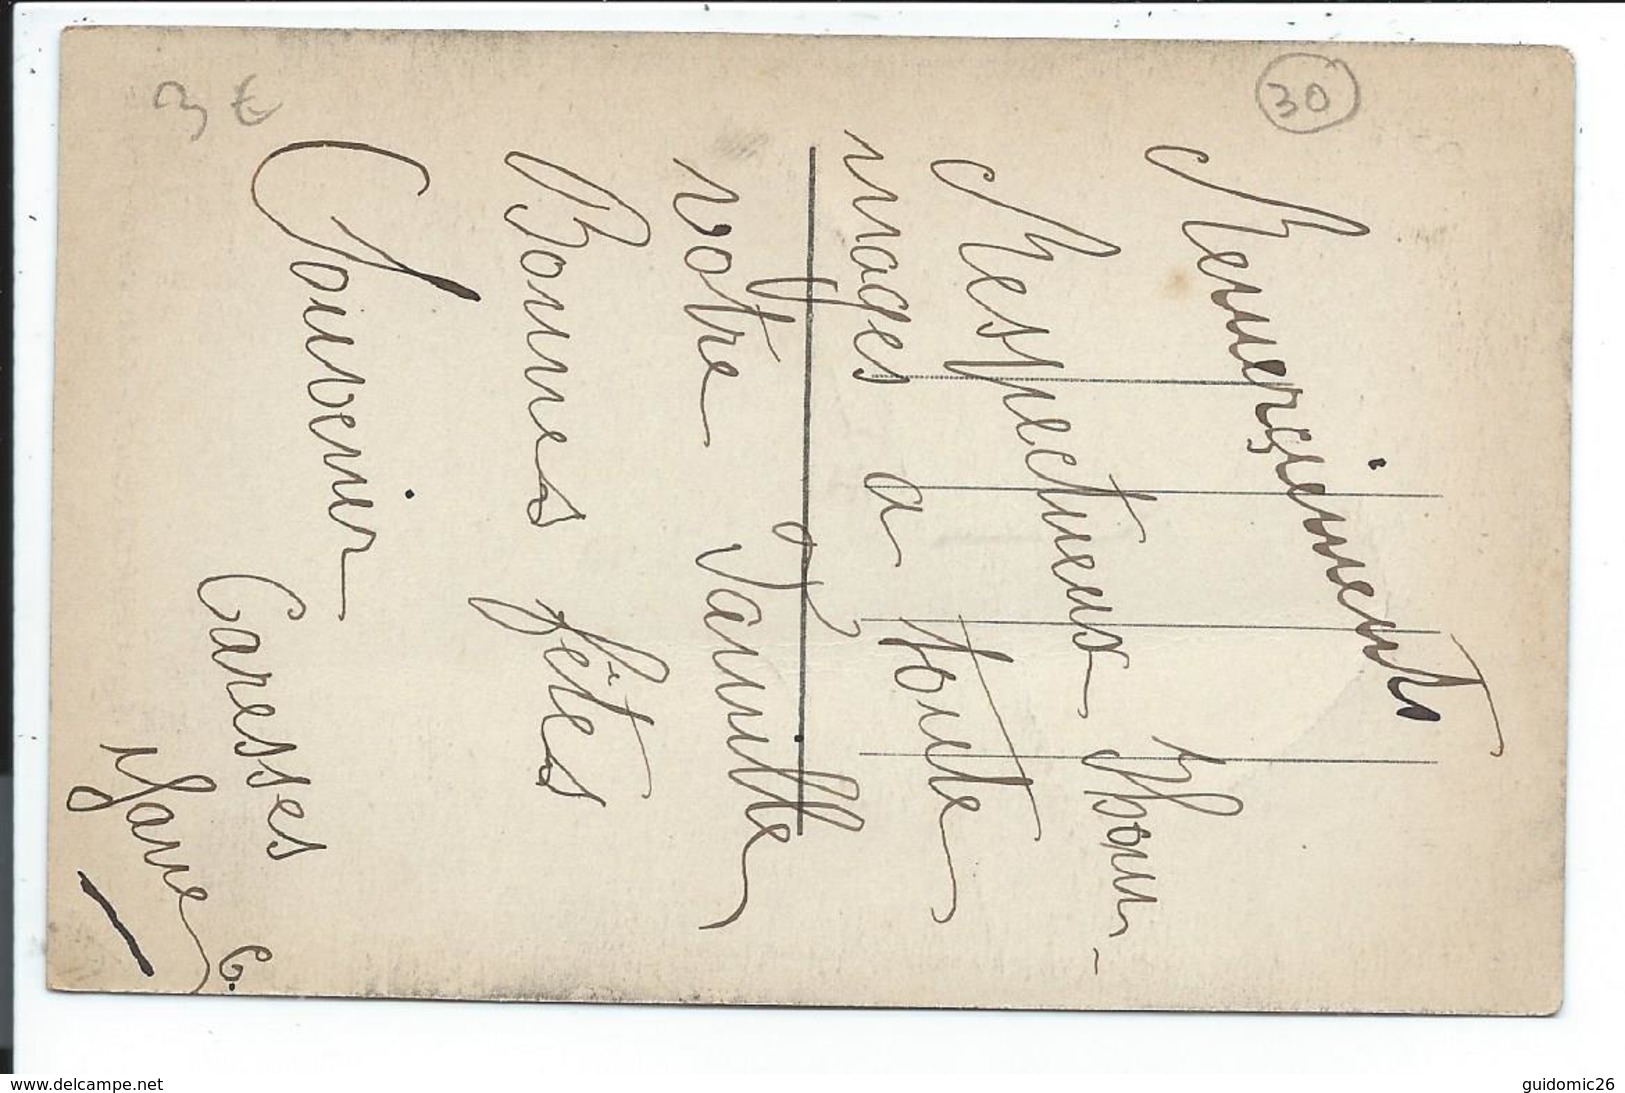 Remerçiements
Respectueux Hom-
mages a toute
votre famille
Bonnes fêtes
Souvenir
Caresses
30
3 €
www.delcampe.net
guidomic26